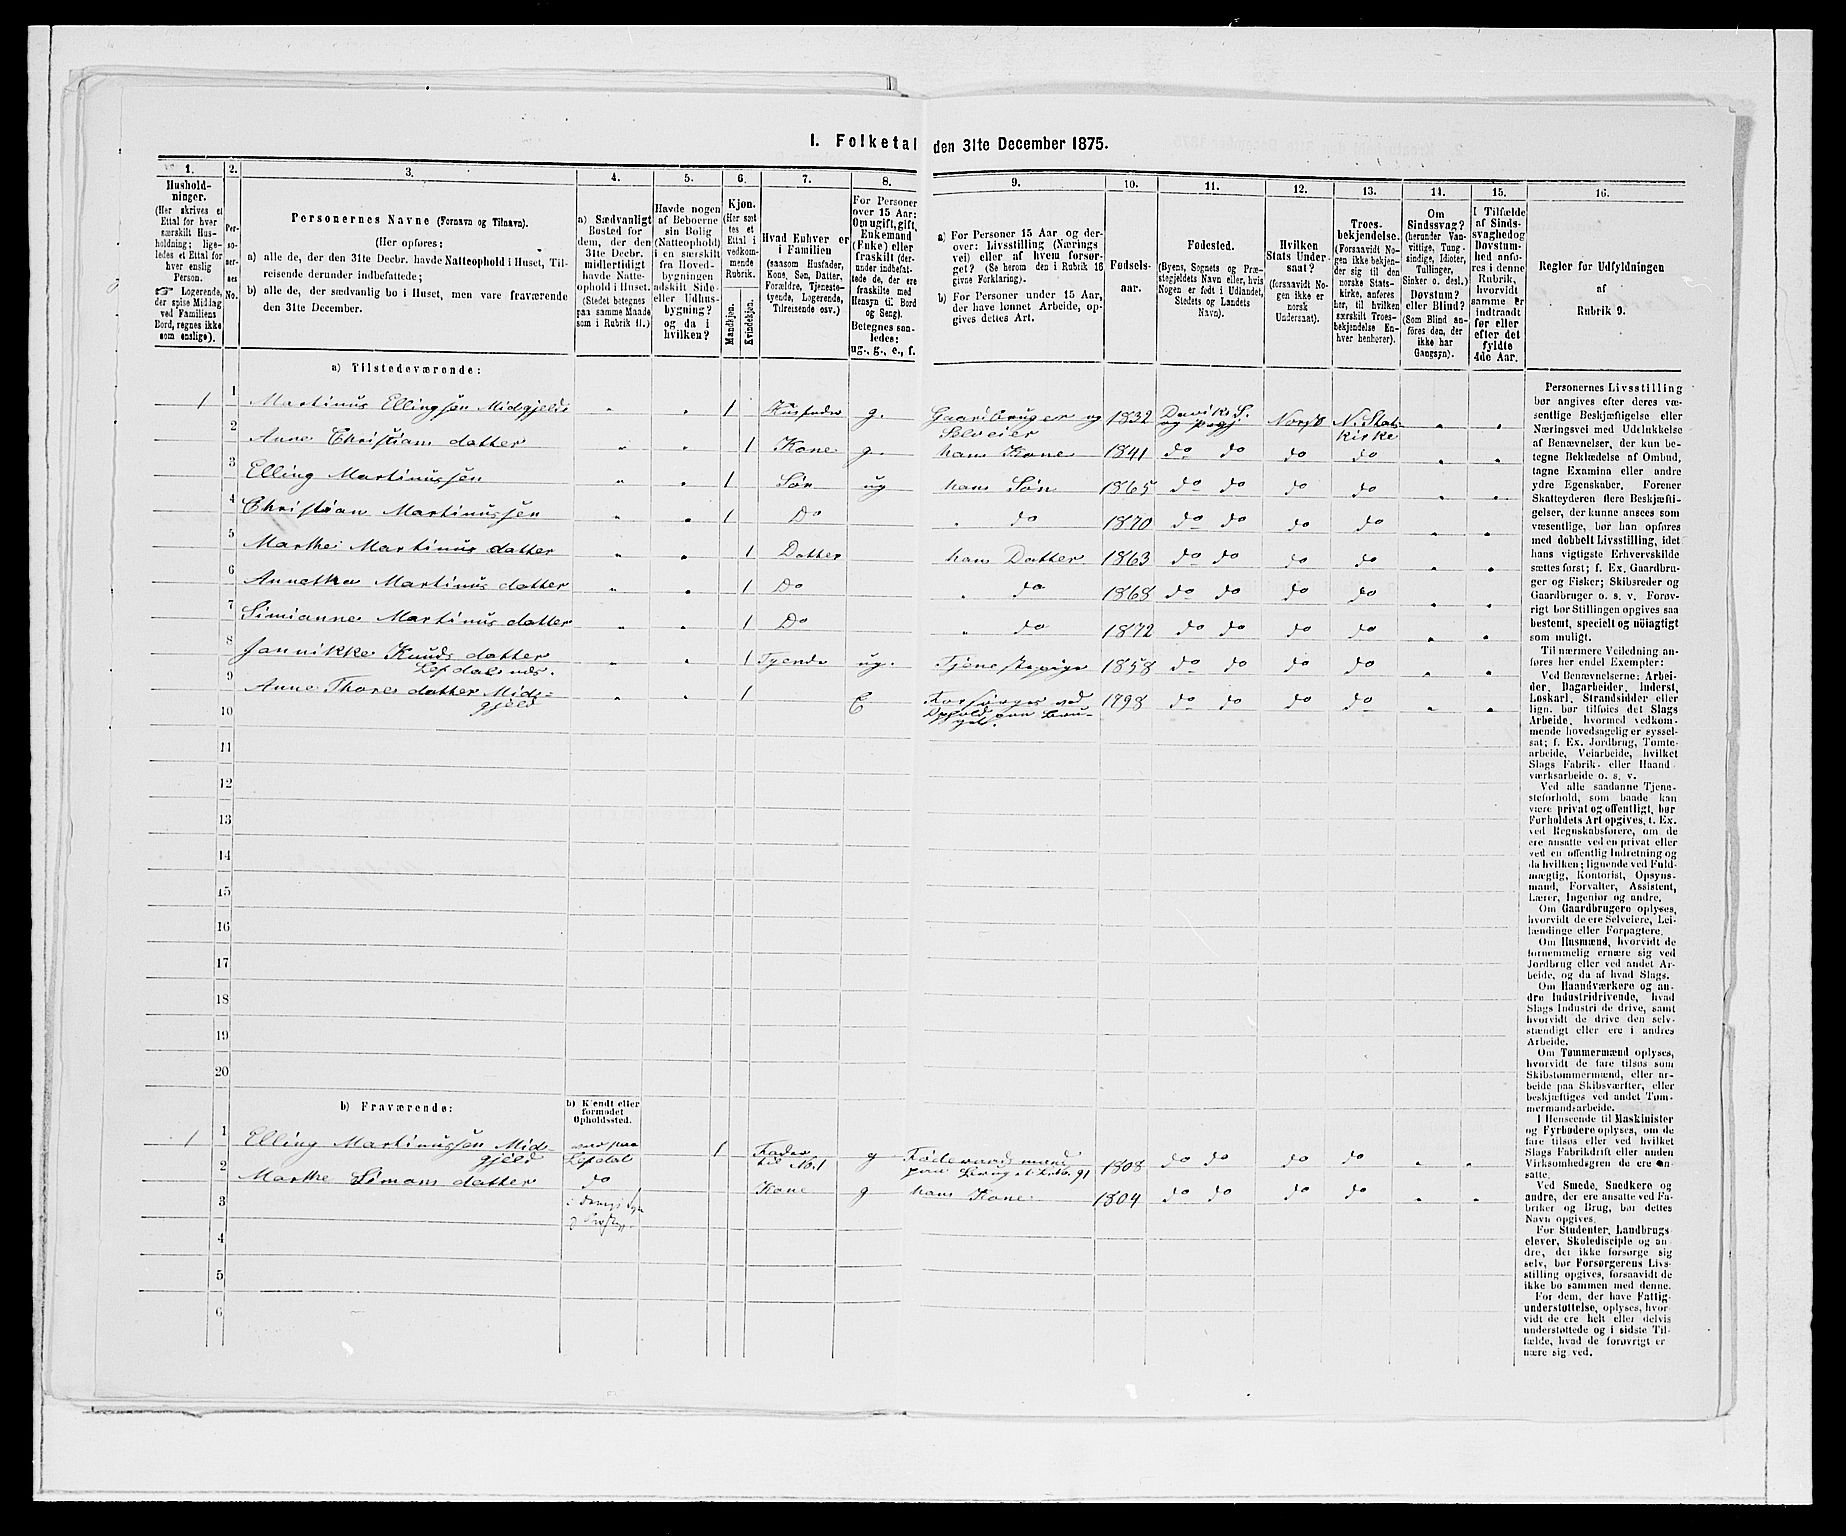 I. Folketal den 31te December 1875.
1. 2. 3. 4. 5. 6. 7. 8. 9. 10. 11. 12. 13. 14. 15. 16.
Hushold-
ninger.
(Her skrives et
Ettal for hver
særskilt Hus-
holdning; lige-
ledes et Ettal for
hver enslig
Person.
☞ Logerende,
der spise Middag
ved Familiens
Bord, regnes ikke
som enslige).
Per-
so-
ner-
nes
No.
Personernes Navne (Fornavn og Tilnavn).
(Her opføres:
a) alle de, der den 31te Decbr. havde Natteophold i Huset, Til-
reisende derunder indbefattede;
b) alle de, der sædvanlig bo i Huset, men vare fraværende
den 31te December.
a) Sædvanligt
Bosted for
dem, der den
31te Decbr.
midlertidigt
havde Natte-
ophold i Huset.
(Stedet betegnes
paa samme Maade
som i Rubrik 11.)
Havde nogen
af Beboerne
sin Bolig
(Natteophold)
i en særskilt
fra Hoved-
bygningen
adskilt Side-
eller Udhus-
bygning?
og da i
hvilken?
Kjøn.
(Her sæt-
tes et
Ettal i
vedkom-
mende
Rubrik.
Mandkjøn.
Kvindekjøn.
Hvad Enhver er
i Familien
(saasom Husfader,
Kone, Søn, Datter,
Forældre, Tjeneste-
tyende, Logerende,
Tilreisende osv.)
For Personer
over 15 Aar:
Om ugift, gift,
Enkemand
(Enke) eller
fraskilt (der-
under indbefat-
tede de, der ere
fraskilte med
Hensyn til Bord
og Seng).
Betegnes saa-
ledes:
ug., g., e., f.
a) For Personer 15 Aar og der-
over: Livsstilling (Nærings
vei) eller af hvem forsør-
get? (Se herom den i Rubrik 16
givne Forklaring).
b) For Personer under 15 Aar,
der have lønnet Arbeide, op-
gives dettes Art.
Fødsels-
aar.
Fødested.
(Byens, Sognets og Præ-
stegjeldets Navn eller, hvis
Nogen er født i Udlandet,
Stedets og Landets
Navn).
Hvilken
Stats Under-
saat?
(forsaavidt No-
gen ikke er
norsk
Undersaat).
Troes-
bekjendelse.
(Forsaavidt No-
gen ikke bekjen-
der sig til den
norske Stats-
kirke, anføres
her, til hvilken
særskilt Troes-
bekjendelse En-
hver henhører).
Om
Sindssvag?
(herunder Van-
vittige, Tung-
sindige, Idioter,
Tullinger,
Sinker o. desl.)
Døvstum?
eller Blind?
(Som Blind an-
føres den, der
ikke har
Gangsyn).
I Tilfælde
af Sinds-
svaghed og
Døvstum-
hed anfø-
res i denne
Rubrik,
hvorvidt
samme er
indtraadt
før eller
efter det
fyldte
4de Aar.
Regler for Udfyldningen
af
Rubrik 9.
a) Tilstedeværende:
1 1 Martinus Ellingsen Midgjeld „ „ 1 Husfader g. Gaardbruger og Selveier 1832 Daviks S. og pregj Norsk N. Stats kirke „ „
2 Anne Christians datter „ „ 1 Kone g. hans Kone 1841 do do do do „ „
3 Elling Martinussen „ „ 1 Søn ug hans Søn 1865 do do do do „ „
4 Christian Martinussen „ „ 1 Do „ do 1870 do do do do „ „
5 Marthe Martinus datter „ „ 1 Datter hans Datter 1863 do do do do „ „
6 Annetha Martinus datter „ „ 1 Do „ do 1868 do do do do „ „
7 Simianne Martinus datter „ „ 1 Do „ do 1872 do do do do „ „
8 Jannikke Knuds datter „ „ 1 Tyende ug. Tjenestepige 1858 do do do do „ „
9 Anne Thores datter Mid-
gjeld „ „ 1 E Forsørges ved 1798 do do do do „ „
10
11
12
13
14
15
16
17
18
19
20
b) Fraværende:
b) Kjendt eller
formodet
Opholdssted.
1 1 Elling Martinussen Mid-
gjeld Lefdal 1 Fader til No. 1 g Føderaadsmand 1808 do do do do „ „
2 Marthe Simons datter do Kone g hans Kone 1804 do do do do „ „
3
4
5
6
Personernes Livsstilling
bør angives efter deres væ-
sentlige Beskjæftigelse eller
Næringsvei med Udelukkelse
af Benævnelser, der kun be-
tegne Beklædelse af Ombud,
tagne Examina eller andre
ydre Egenskaber. Forener
Skatteyderen flere Beskjæfti-
gelser, der kunne ansees som
væsentlige, bør han opføres
med dobbelt Livsstilling, idet
hans vigtigste Erhvervskilde
sættes først; f. Ex. Gaardbru-
ger og Fisker; Skibsreder og
Gaardbruger o. s. v. Forøv-
rigt bør Stillingen opgives saa
bestemt, specielt og nöiagtigt
som muligt.
Til nærmere Veiledning an-
føres her endel Exempler:
Ved Benævnelserne: Arbei-
der, Dagarbeider, Inderst,
Løskarl, Strandsidder eller
lign. bør tilføies det Slags
Arbeide, hvormed vedkom-
mende hovedsagelig er syssel-
sat; f. Ex. Jordbrug, Tomte-
arbeide, Veiarbeide, hvilket
Slags Fabrik- eller Haand
værksarbeide o. s. v.
Ved alle saadanne Tjene-
steforhold, som baade kan
være privat og offentligt, bør
Forholdets Art opgives, t. Ex.
ved Regnskabsførere, om de
ere ansatte ved en privat eller
ved en offentlig Indretning og
da hvilken; lignende ved Fuld-
mægtig, Kontorist, Opsyns-
mand, Forvalter, Assistent,
Lærer, Ingeniør og andre.
Om Gaardbrugere oplyses,
hvorvidt de ere Selveiere, Lei-
lændinge eller Forpagtere.
Om Husmænd, hvorvidt de
fornemmelig ernære sig ved
Jordbrug eller ved andet Ar-
beide, og da af hvad Slags.
Om Haandværkere og an-
dre Industridrivende, hvad
Slags Industri de drive, samt
hvorvidt de drive den selv-
stændigt eller ere i andres
Arbeide.
Om Tømmermænd oplyses,
hvorvidt de fare tilsøs som
Skibstømmermænd, eller ar-
beide paa Skibsværfter, eller
beskjæftiges ved andet Tøm-
mermandsarbeide.
I Henseende til Maskinister
og Fyrbødere oplyses, om de
fare tilsøs eller ved hvilket
Slags Fabrikdrift eller anden
Virksomhedsgren de ere an-
satte.
Ved Smede, Snedkere og
andre, der ere ansatte ved Fa-
briker og Brug, bør dettes
Navn opgives.
For Studenter, Landbrugs-
elever, Skoledisciple og an-
dre, der ikke forsørge sig
selv, bør Forsørgerens Livs-
stilling opgives, forsaavidt de
ikke bo sammen med denne.
For dem, der have Fattig-
understøttelse, oplyses, hvor-
vidt de ere helt eller delvis
understøttede og i sidste Til-
fælde, hvad de forøvrigt er
nære sig ved.